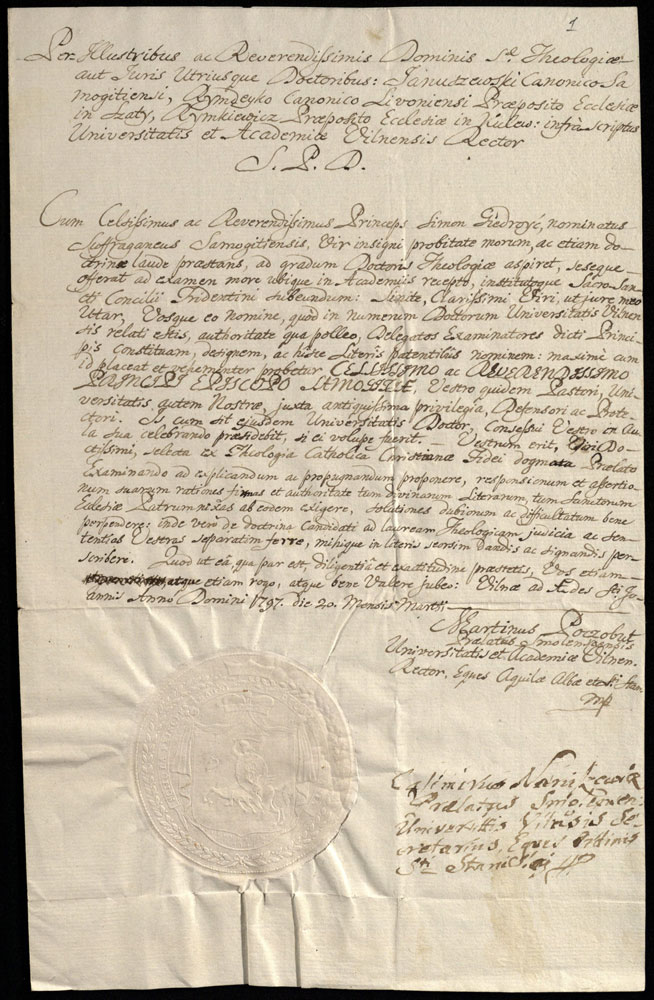 1
Per Illustribus ac Reverendissimis Dominis Sæ Theologiæ
aut Juris Utriusque Doctoribus: Janudzewoski Canonico Sa
mogitiensi, Rymdeyko Canonico Livoniensi Præposito Ecclesiæ
in Szaty, Rymkiewicz Præposito Ecclesiæ in Kulew: infrà scriptus
Universitatis et Academiæ Vilnensis Rector
S. P. D.
Cum Celsissimus ac Reverendissimus Princeps Simon Giedroyć, nominatus
Suffraganeus Samogitiensis, Vir insigni probitate morum, ac etiam do
ctrinæ laude præstans, ad gradum Doctoris Theologiæ aspiret, seseque
offerat ad examen more ubique in Academiis recepto, institutoque Sacro San
cti Concilii Tridentini subeundum: Sinite, Clarissimi Viri, ut jure meo
Utar, Vosque eo nomine, quòd in numerum Doctorum Universitatis Vilnen
sis relati estis, authoritate qua polleo, Delegatos Examinatores dicti Princi
pis Constituam, designem, ac hisce Literis patentibus nominem: maximè cum
id placeat et vehementer probetur CELSISSIMO ac REVERENDISSIMO
PRINCIPI EPISCOPO SAMOGITIÆ, Vestro quidem Pastori, Uni
versitatis autem Nostræ, juxta antiquissima privilegia, Defensori ac Pote
ctori. Is cum sit ejusdem Universitatis Doctor, Consessui Vestro in Au
la sua celebrando præsidebit, si ei volupe fuerit. — Vestrum erit, Viri Do
ctissimi, selecta ex Theologia Catholica Christianæ Fidei dogmata Prælato
Examinando ad explicandum ac propugnandum proponere, responsionum et assertio
num suarum rationes firmas et authoritate tum divinarum Literarum, tum Sanctorum
Ecclesiæ Patrum nixas ab eodem exigere, solutiones dubiorum ac difficultatum bene
perpendere: inde verò de doctrina Candidati ad lauream Theologicam judicia ac sen
tentias Vestras separatim ferre, mihique in literis seorsim dandis ac signandis per
scribere. Quod ut eâ, qua par est, diligentiâ et exactitudine præstetis, Vos etiam
atque etiam rogo, atque bene Valere jubeo: Vilnæ ad Ædes Sti Jo
annis Anno Domini 1797. die 20. Mensis Martii.
Martinus Poczobut
Prælatus Smolenscensis
Universitatis et Academiæ Vilnen.
Rector. Eques Aquilæ Albæ et Sti Stan.
mp
Casimirus Naruszewicz
Prælatus Smolenscen:
Universittis Vilnsis Se
cretarius, Eques Ordinis
Sti Stanislai